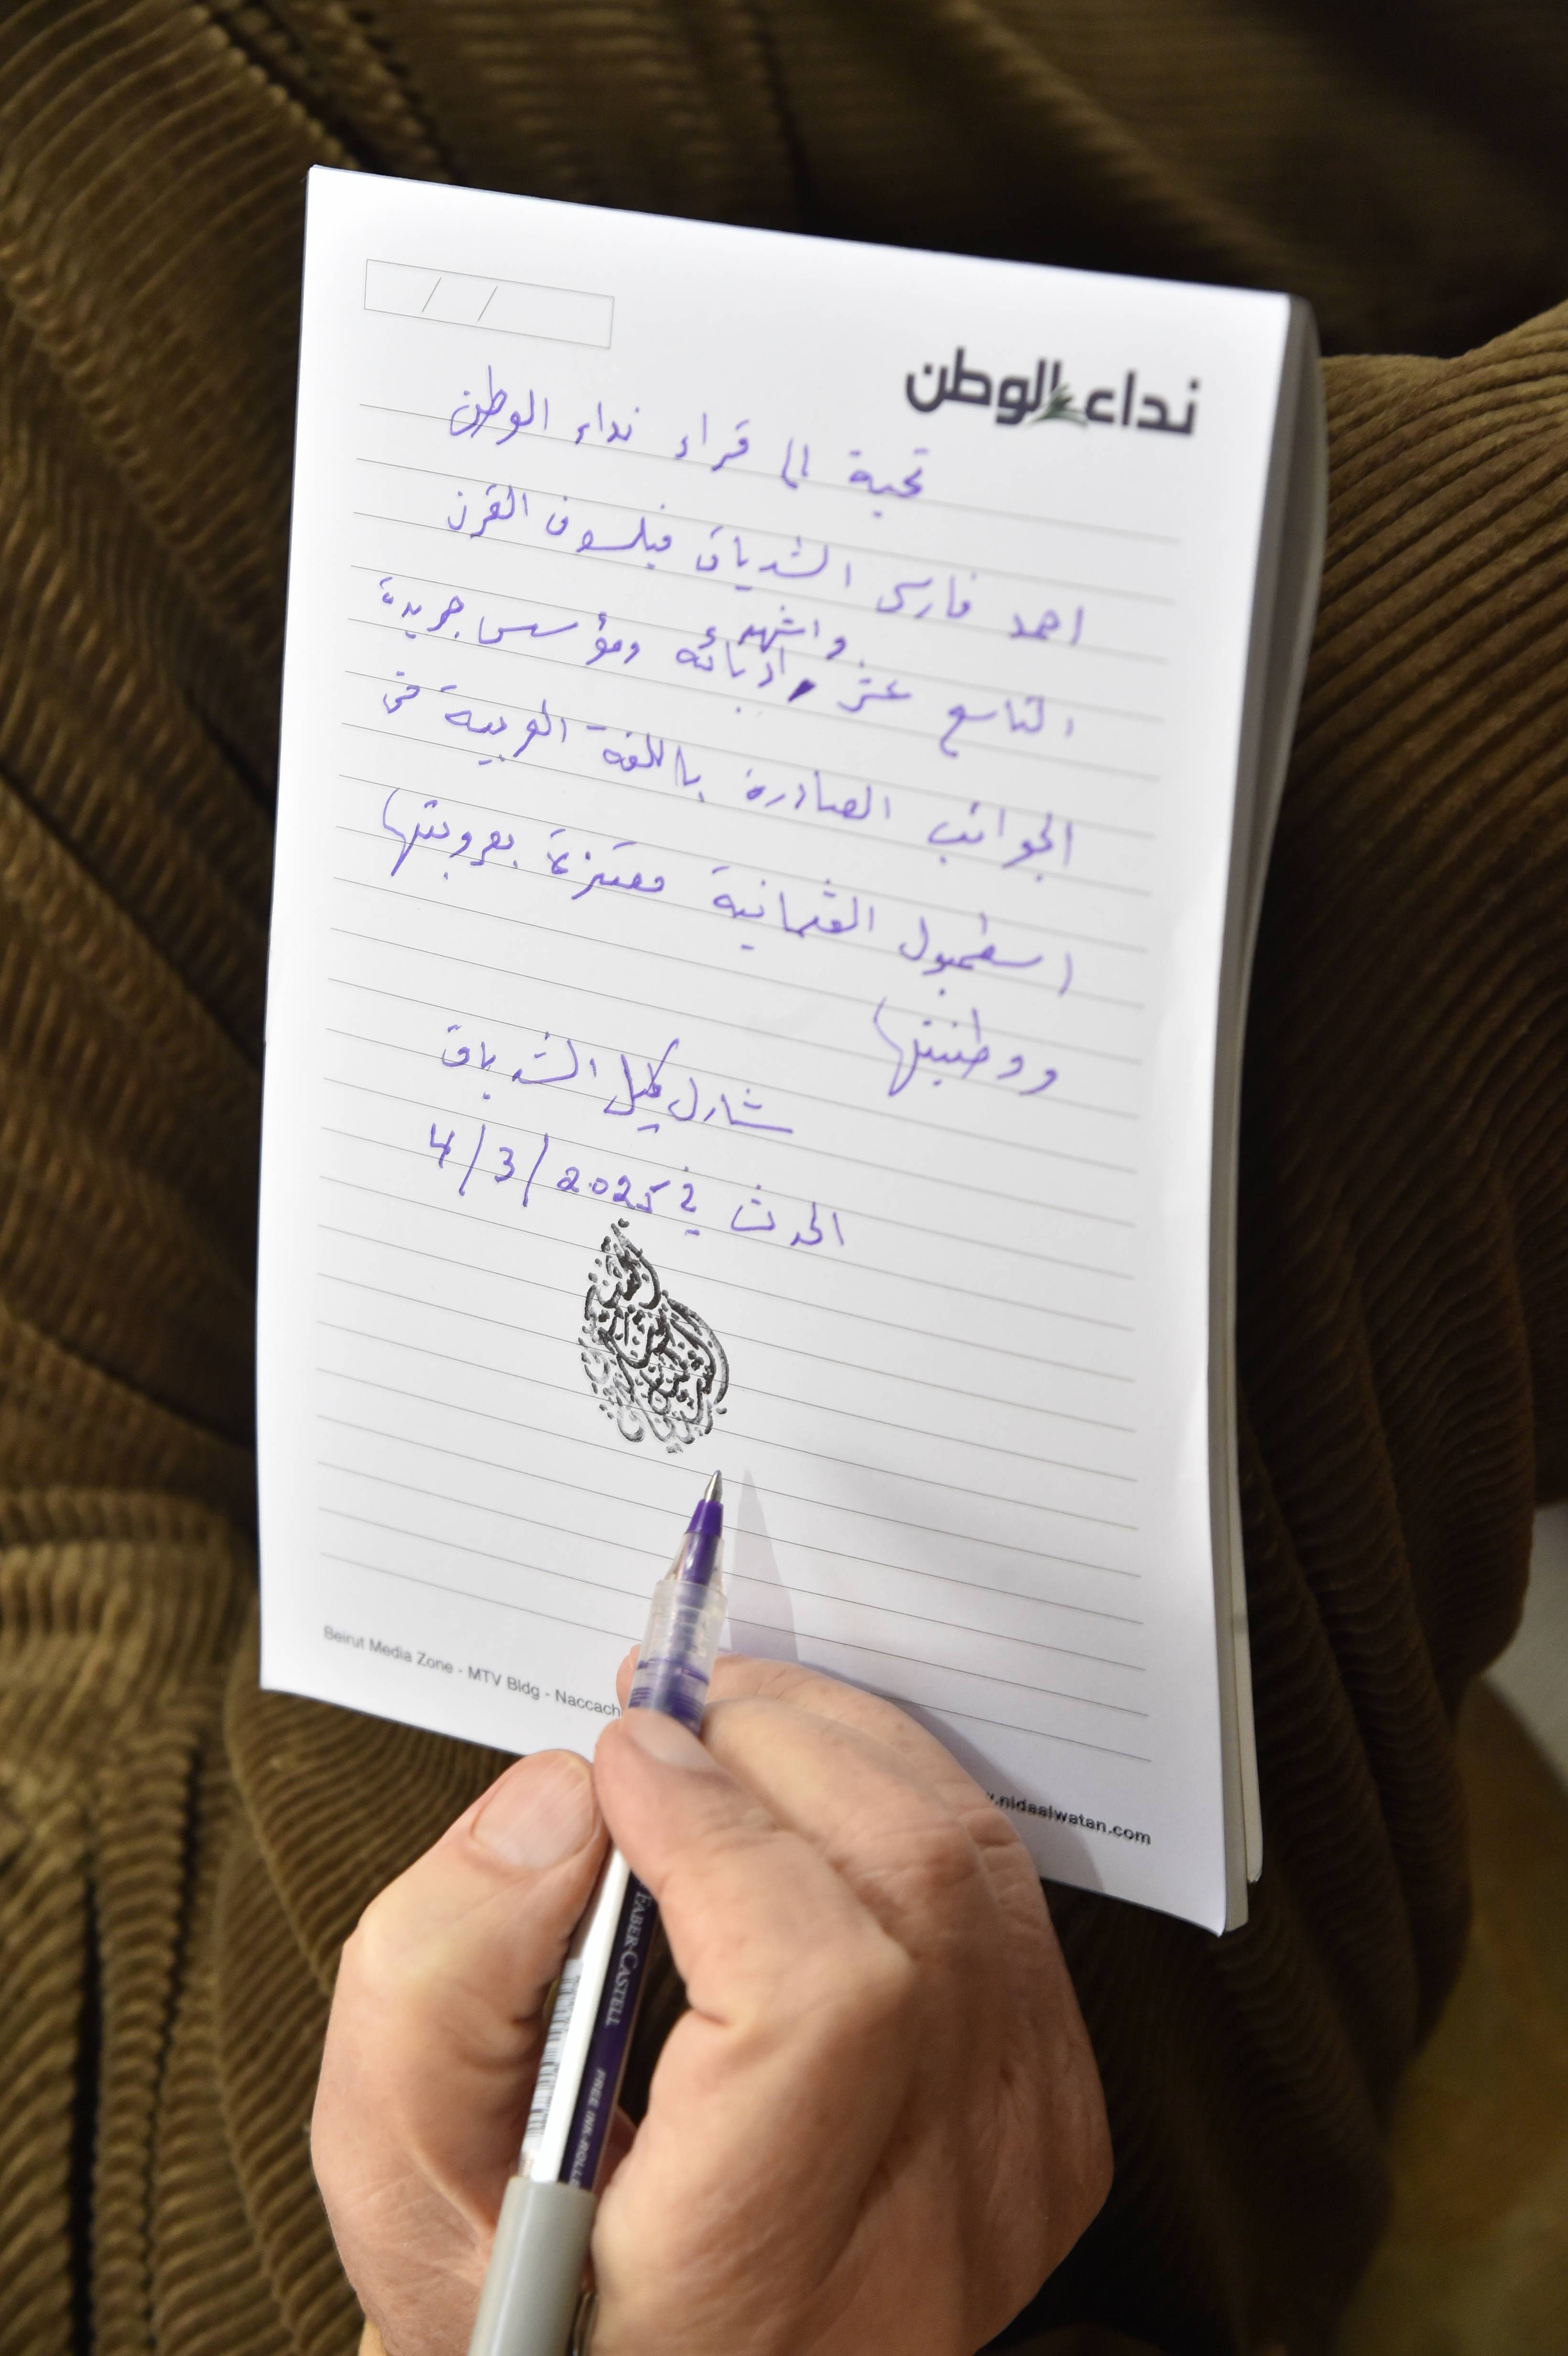 نداء الوطن
/ /
تحية الى قراء نداء الوطن
احمد فارس الشدياق فيلسوف القرن
واشهر
التاسع عشر ادبائه ومؤسس جريدة
الجوائب الصادرة باللغة العربية في
اسطمبول العثمانية معتزة بعروبتها
ووطنيتها
شارل الشدياق
الحدث في 4/3/2025
Beirut Media Zone - MTV Bldg - Naccach
.nidaalwatan.com
FABER-CASTELL
FREE INK-ROLLE